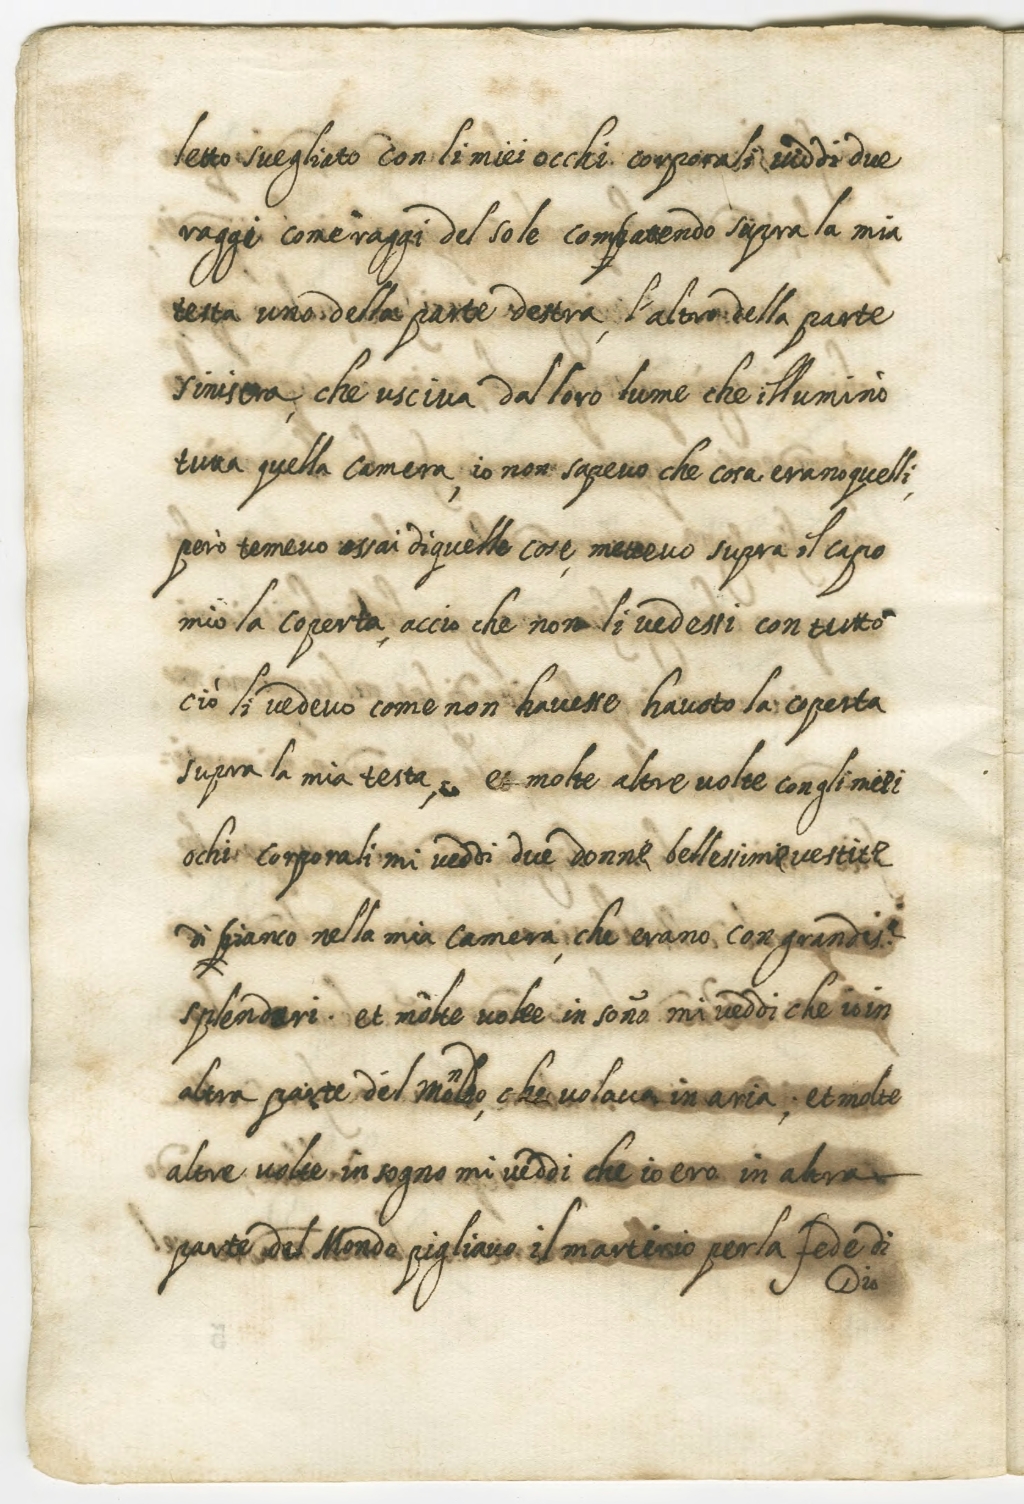 letto svegliato con li miei occhi corporali viddi due
raggi come raggi del sole compatendo supra la mia
testa uno della parte destra, l'altro della parte
sinistra, che usciva dal loro lume che illuminò
tutta quella camera, io non sapevo che cosa erano quelli,
però temevo assai di quelle cose, mettevo supra il capo
mio la coperta, acciò che non li vedessi con tutto
ciò li vedevo come non havesse havuto la coperta
supra la mia testa, et molte altre volte con gli miei
ochi corporali mi veddi due donne bellessime vestite
di bianco nella mia camera, che erano con grandiss.e
splenduri. et molte volte in soño mi veddi che io in
altra parte del Mondo, che volava in aria; et molte
altre volte in sogno mi veddi che io ero in altra
parte del Mondo pigliavo il martirio per la fede di
Dio